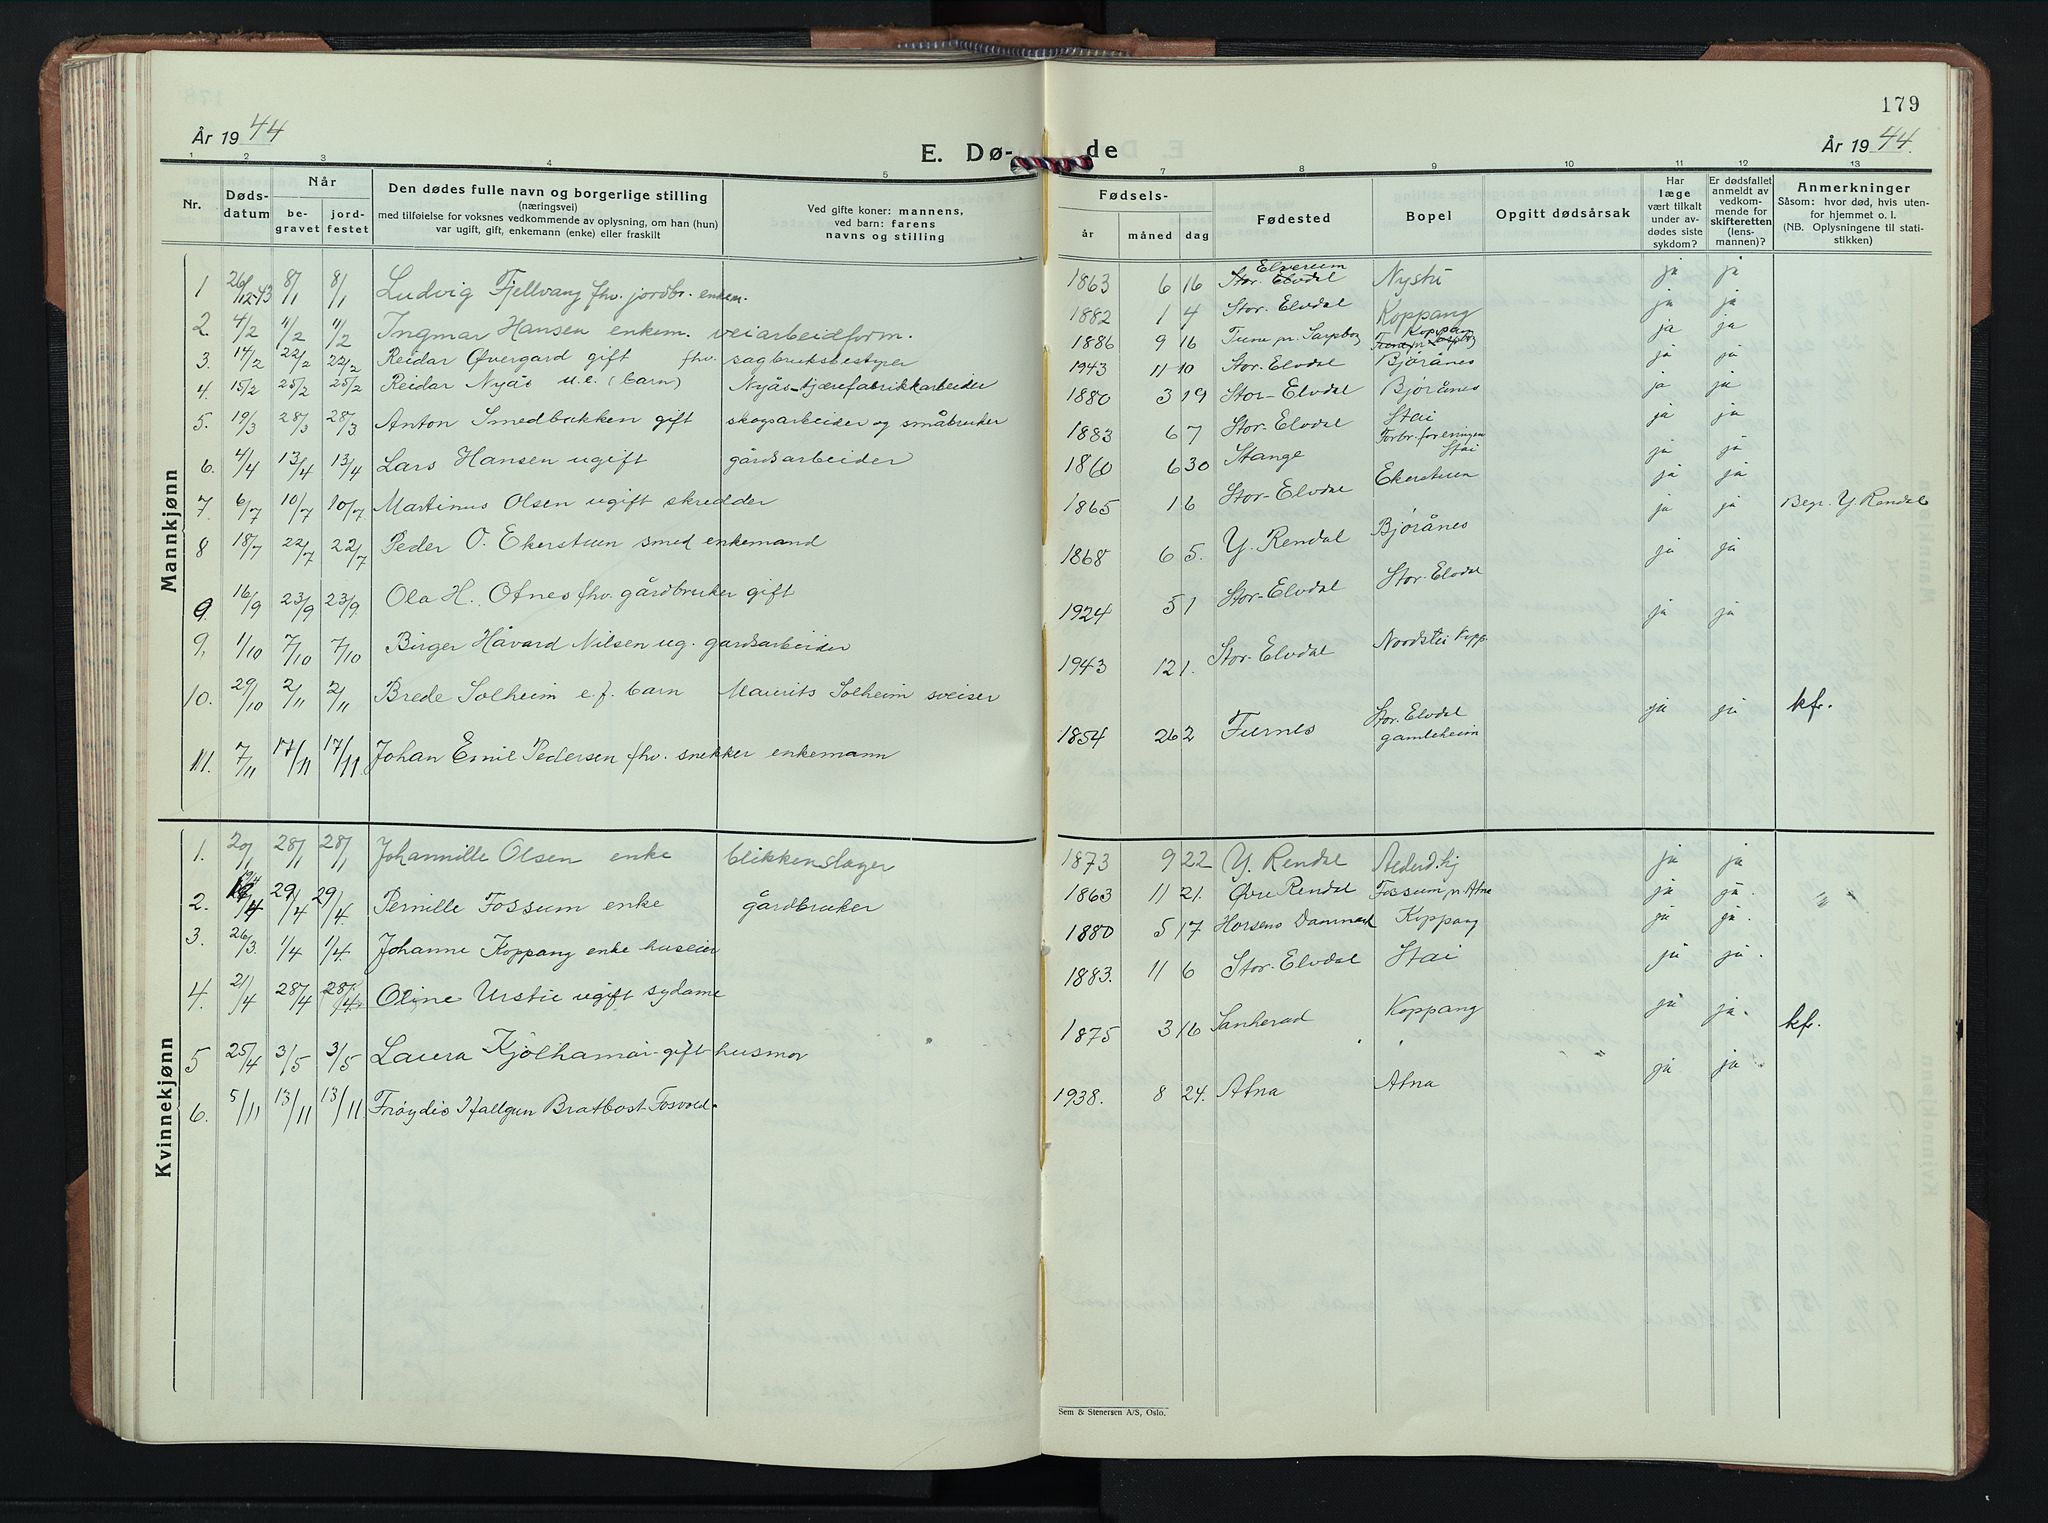 179
År 1944
E. Dø- de
År 1944.
1 2 3 4 5 7 8 9 10 11 12 13
Nr.
Døds-datum
Når
be-gravet
jord-festet
Den dødes fulle navn og borgerlige stilling
(næringsvei)
med tilføielse for voksnes vedkommende av oplysning, om han (hun)
var ugift, gift, enkemann (enke) eller fraskilt
Ved gifte koner: mannens,
ved barn: farens
navns og stilling
Fødsels-
år måned dag
Fødested
Bopel
Opgitt dødsårsak
Har
læge
vært tilkalt
under av-
dødes siste
sykdom?
Er dødsfallet
anmeldt av
vedkom-
mende for
skifteretten
(lens-
mannen)?
Anmerkninger
Såsom: hvor død, hvis uten-
for hjemmet o. l.
(NB. Oplysningene til stati-
stikken)
Mannkjønn
1 26/12-43 8/1 8/1 Ludvig Fjellvang fhv. jordbr. enkem. 1863 6 16 Elverum Stor-Elvdal Nystu ja ja
2. 4/2 11/2 11/2 Ingmar Hansen enkem. veiarbeidform. 1882 1 4 Stor-Elvdal Koppang ja ja
3. 14/2 22/2 22/2 Reidar Øvergard gift fhv. sagbruksbestyrer 1886 9 16 Tune pr. Sarpbog Koppang ja ja
4. 15/2 25/2 25/2 Reidar Nyås u.e. (barn) Nyås-tjærefabrikkarbeider 1943 11 10 Stor-Elvdal Bjørånes ja ja
5. 19/3 28/3 28/3 Anton Smedbakken gift skogsarbeider og småbruker 1880 3 19 Stor-Elvdal Bjørånes ja ja
6. 4/4 13/4 13/4 Lars Hansen ugift gårdsarbeider 1883 6 7 Stor-Elvdal Stai ja ja
7. 6/7 10/7 10/7 Martinus Olsen ugift skredder 1860 6 30 Stange Forbr.foreningen Stai ja ja
8 18/7 22/7 22/7 Peder O. Ekerstuen smed enkemand 1865 1 6 Stor-Elvdal Ekerstuen ja ja
9. 16/9 23/9 23/9 Ola H. Otnes fhv. gårdbruker gift 1868 6 5. Y. Rendal Bjørånes ja ja Begr. Y. Rendal
9, 1/10 7/10 7/10 Birger Håvard Nilsen ug. gardsarbeider 1924 5 1 Stor-Elvdal Stor-Elvdal ja ja
10. 29/10 2/11 2/11 Brede Solheim e.f. barn Maurits Solheim sveiser 1943 12 1. Stor-Elvdal Nordstu Kopp. ja ja
11. 7/11 17/11 17/11 Johan Emil Pedersen fhv. snekker enkemann 1854 26 2 Furnes Stor-Elvdal gamleheim ja ja kfr.
Kvinnekjønn
1. 20/1 28/1 28/1 Johannille Olsen enke blikkenslager 1873 9 22 Y. Rendal Alderd.hj ja ja
2. 19/4 29/4 29/4 Pernille Fossum enke gårdbruker 1863 11 21. Øvre Rendal Fossum pr Atna ja ja. " "
3. 26/3. 1/4 1/4. Johanne Koppang enke huseier 1880 5 17 Horsens Danmark Koppang ja ja.
4. 21/4 28/4 28/4. Oline Urstie ugift sydame 1883. 11 6 Stor-Elvdal Stai ja ja.
5 25/4 3/5 3/5 Laura Kjølhamar-gift husmor 1875 3 16 Sanherad Koppang ja ja. kfr.
6. 5/11 13/11 13/11 Frøydis Hallgun Bratbost Fosvold. 1938. 8 24. Atna Atna ja ja
Sem & Stenersen A/S, Oslo.